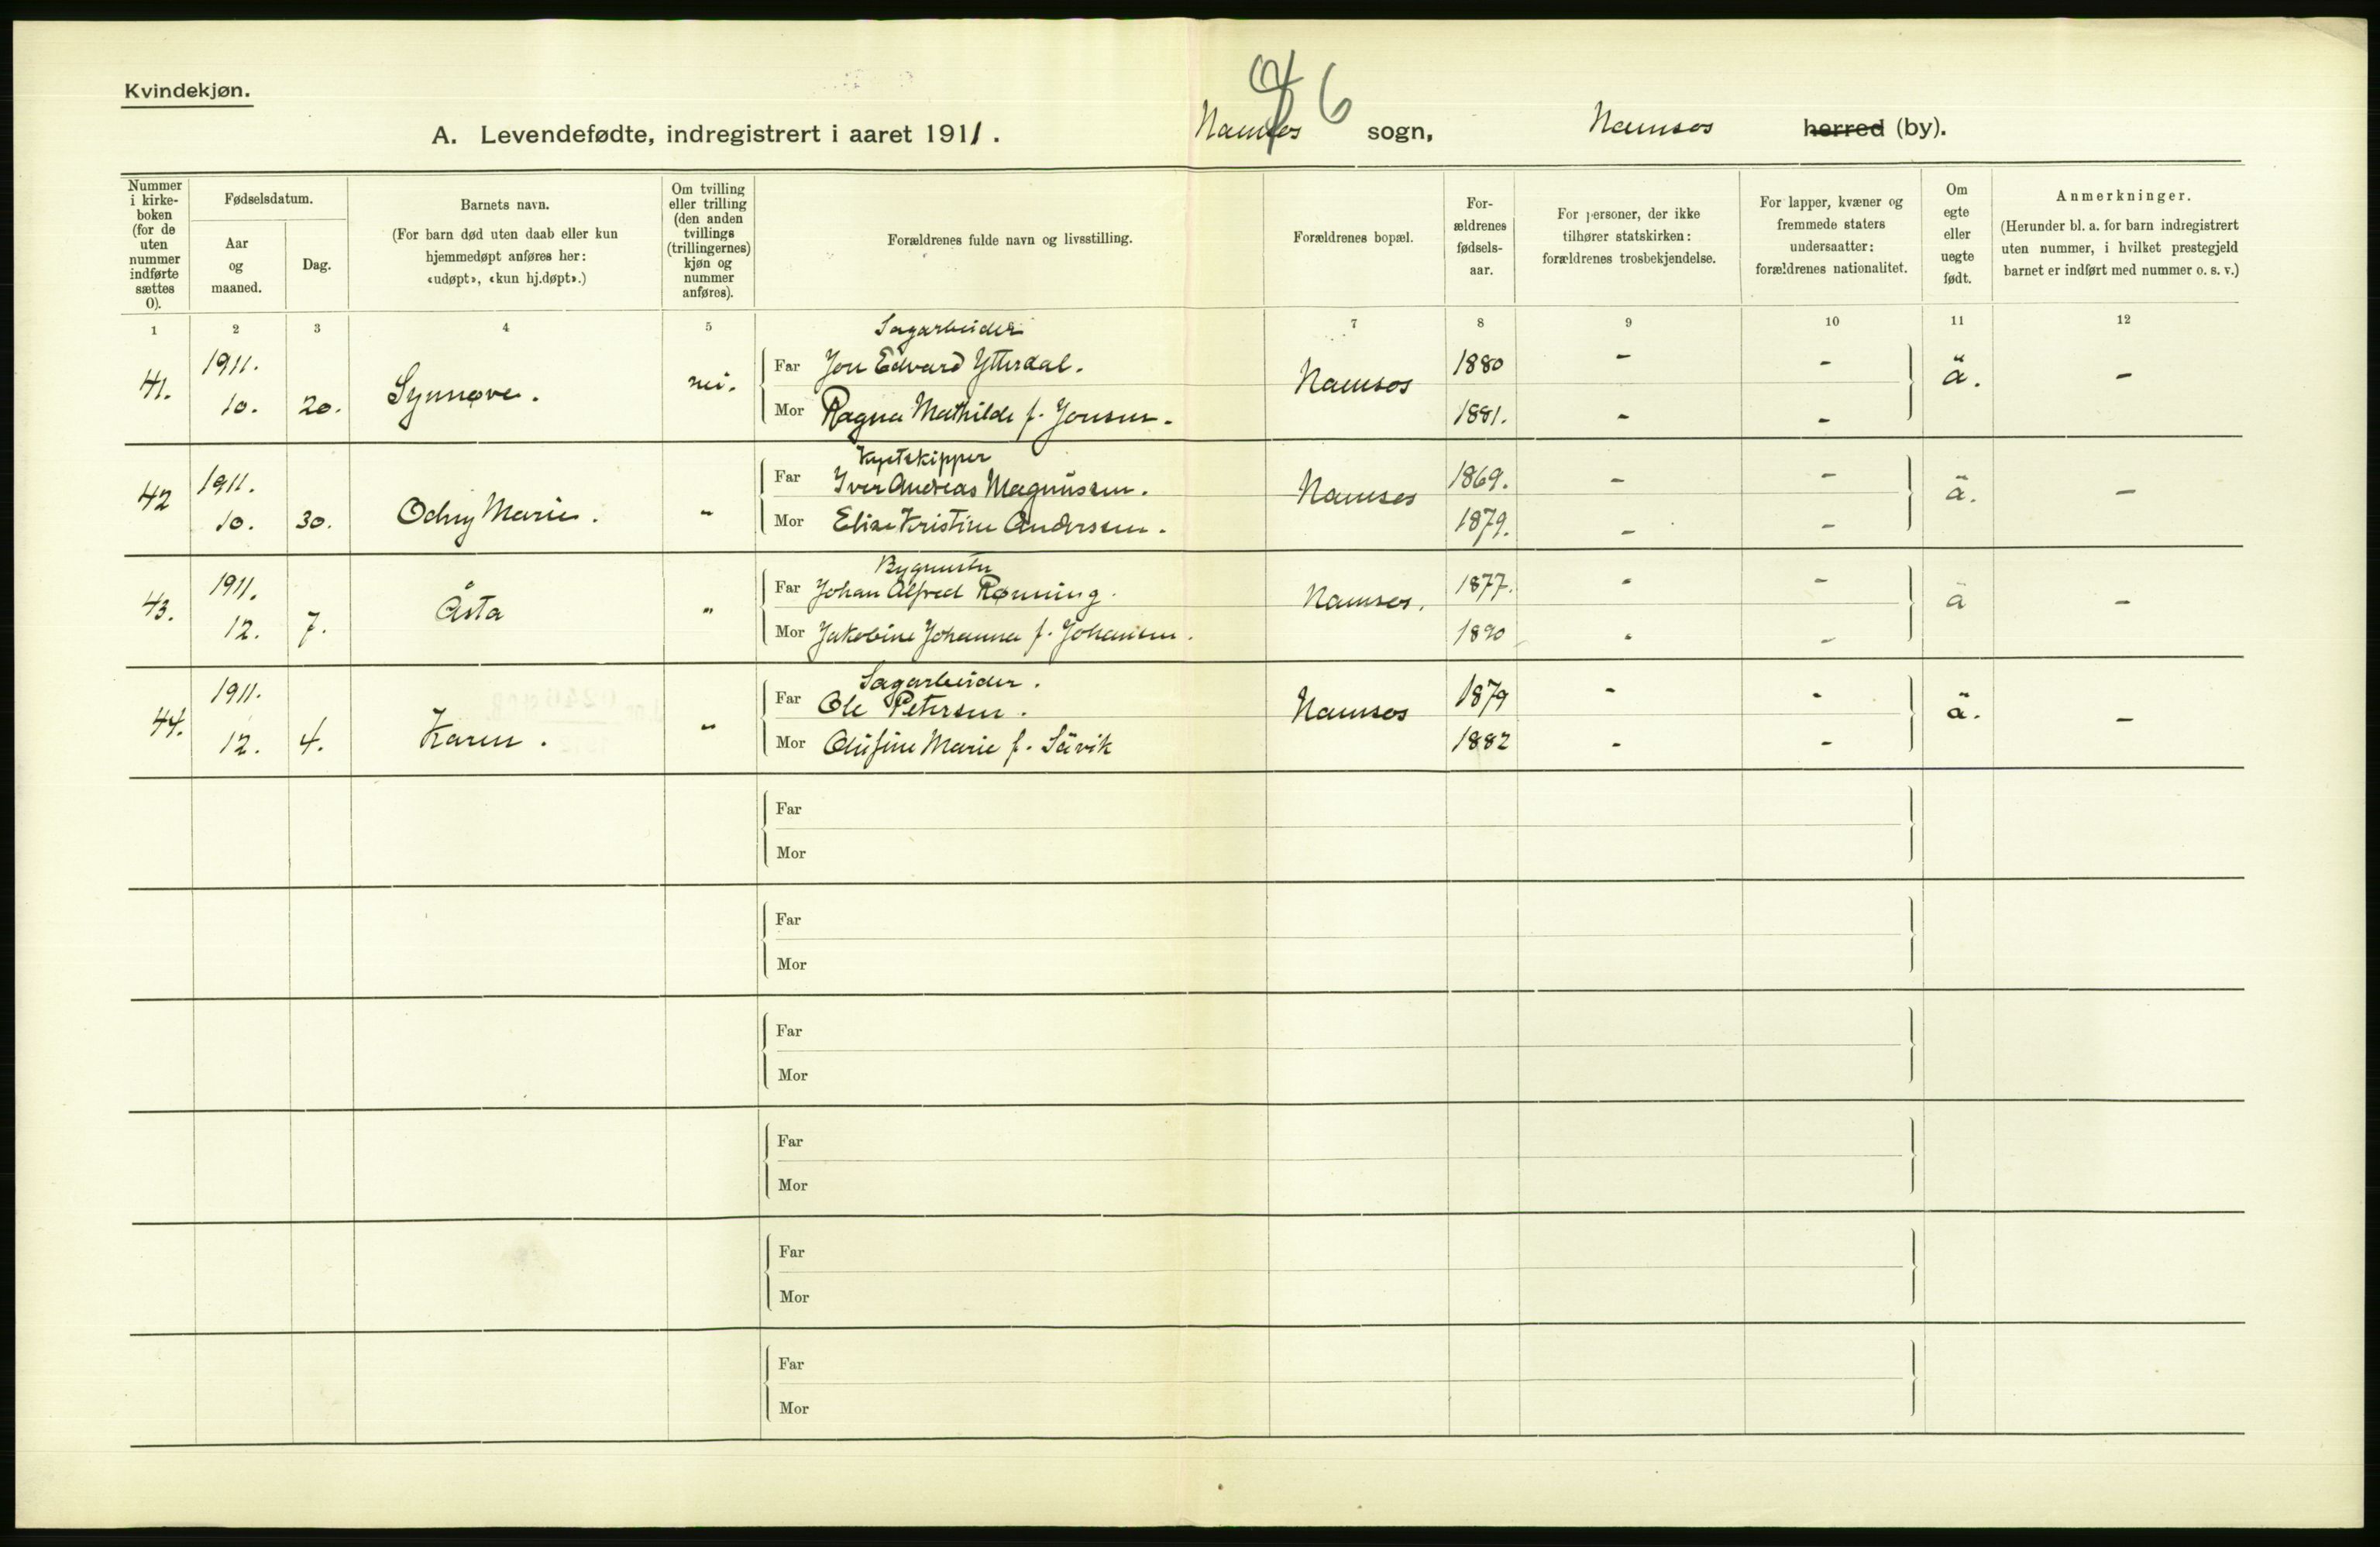 Kvindekjøn.
6
A. Levendefødte, indregistrert i aaret 1911. Namsos sogn, Namsos herred (by).
Nummer i kirke-boken (for de uten nummer indførte sættes 0).
Fødselsdatum.
Aar og maaned.
Dag.
Barnets navn.
(For barn død uten daab eller kun hjemmedøpt anføres her: «udøpt», «kun hj.døpt».)
Om tvilling eller trilling (den anden tvillings (trillingernes) kjøn og nummer anføres).
Forældrenes fulde navn og livsstilling.
Forældrenes bopæl.
For-ældrenes fødsels-aar.
For personer, der ikke tilhører statskirken: forældrenes trosbekjendelse.
For lapper, kvæner og fremmede staters undersaatter: forældrenes nationalitet.
Om egte eller uegte født.
Anmerkninger.
(Herunder bl. a. for barn indregistrert uten nummer, i hvilket prestegjeld barnet er indført med nummer o. s. v.)
1 2 3 4 5 7 8 9 10 11 12
Sagarbeider
41. 1911. 10. 20. Synnøve. nei.
Far Jon Edvard Ytterdal. Namsos 1880 - - ä. -
Mor Ragna Mathilde f. Jonsen. 1881. - -
Kystskipper
42 1911. 10. 30. Odny Marie. "
Far Iver Andreas Magnussen. Namsos 1869. - - ä. -
Mor Elise Kristine Anderssen. 1879. - -
Bygmester
43. 1911. 12. 7. Åsta "
Far Johan Alfred Rønning. Namsos. 1877. - - ä -
Mor Jakobine Johanna f. Johansen. 1890 - -
Sagarbeider.
44. 1911. 12. 4. Karen. "
Far Ole Petersen. Namsos 1879 - - ä. -
Mor Olufine Marie f. Sävik 1882 - -
Far
Mor
Far
Mor
Far
Mor
Far
Mor
Far
Mor
Far
Mor